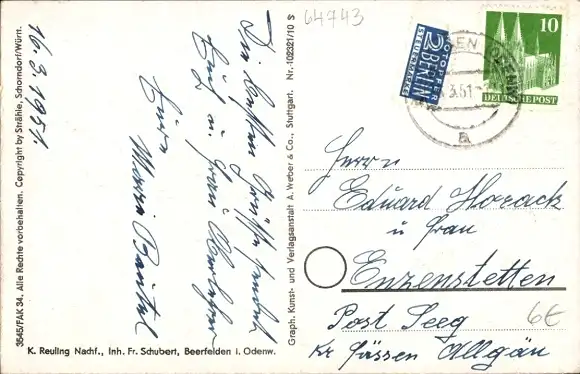 16.3.1951.
Die besten Grüße sendet
Euch u. Frau
Eure
Maria Beutel
3545/FFAK 34. Alle Rechte vorbehalten. Copyright by Strähle, Schorndorf/Württ.
K. Reuling Nachf., Inh. Fr. Schubert, Beerfelden i. Odenw.
Graph. Kunst- und Verlagsanstalt A. Weber & Co., Stuttgart. Nr. 102321/10 S
64743
NOTOPFER
2 BERLIN
STEUERMARKE
10
DEUTSCHE POST
3.51
a
Herrn
Eduard Horack
u Frau
Enzenstetten
Post Seeg
Kr Füssen Allgäu
6€